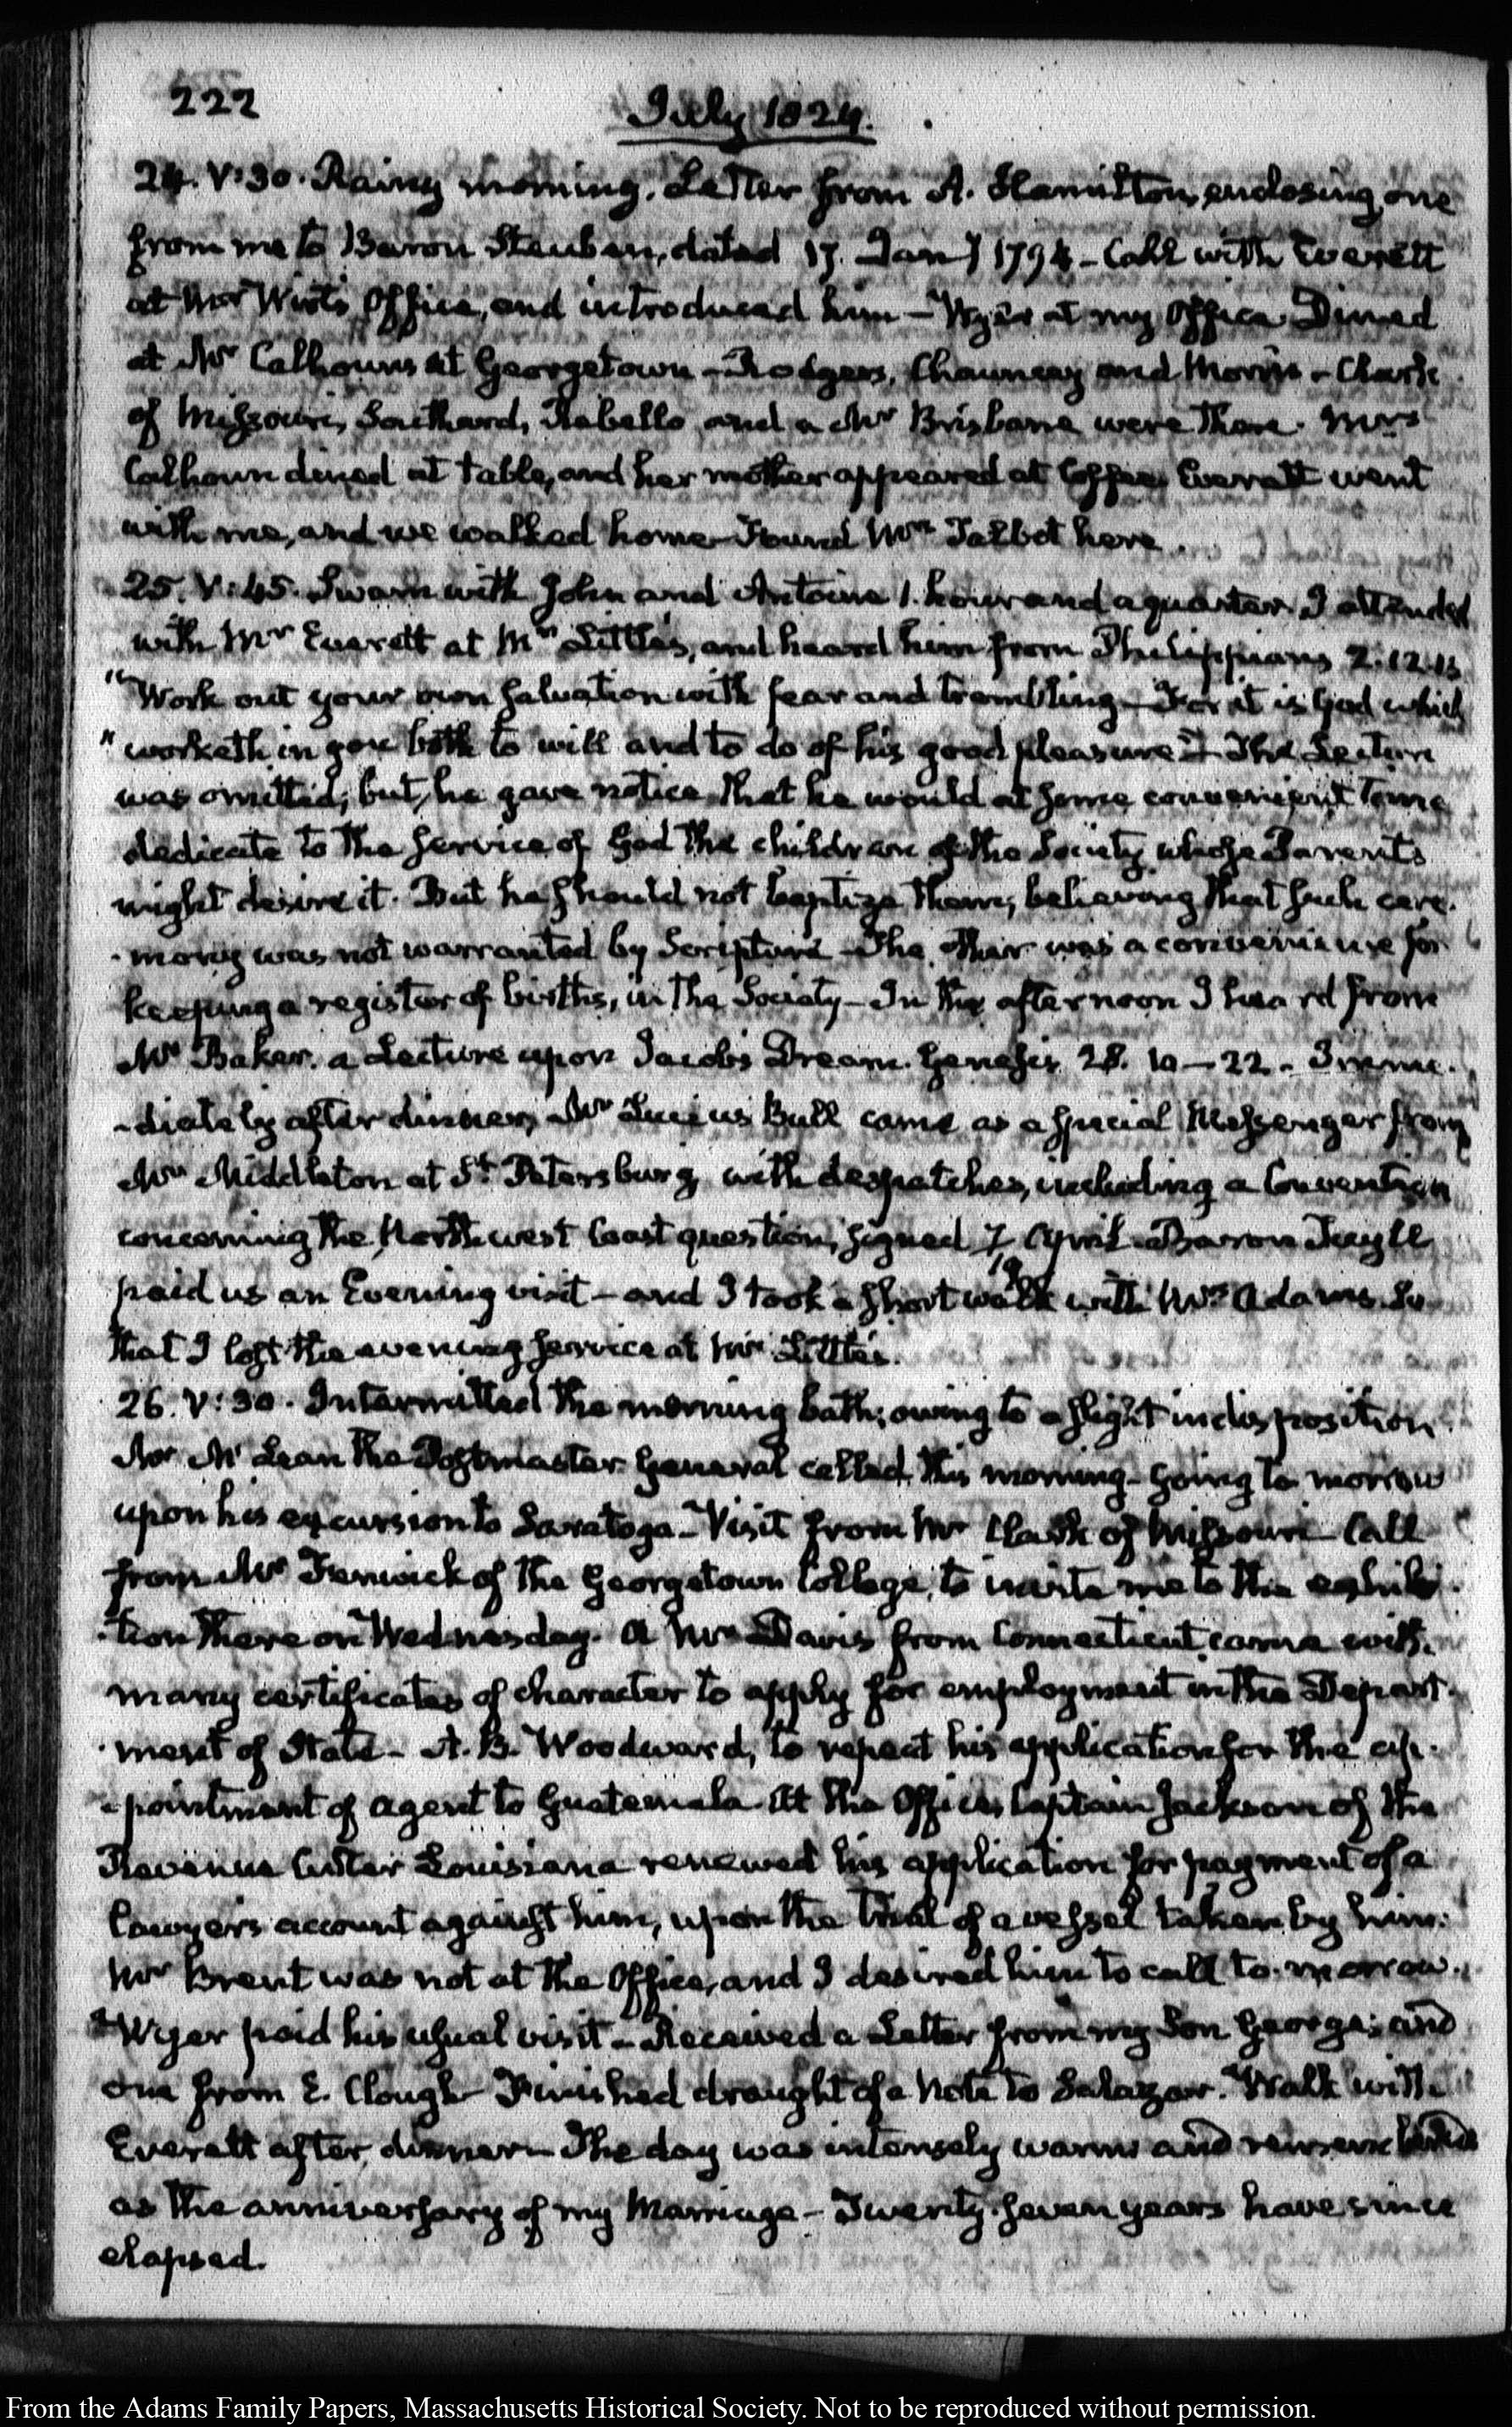 222
July 1824.
24. V:30. Rainy morning. Letter from A. Hamilton, enclosing one
from me to Baron Steuben, dated 17. Jany 1794 - Call with Everett
at Mr Wirt's Office, and introduced him - Wyer at my Office. Dined
at Mr Calhoun's at Georgetown - Rodgers, Chauncey and Morris - Clark
of Missouri, Southard, Rebello and a Mr Brisbane were there. Mrs
Calhoun dined at table, and her mother appeared at Coffee. Everett went
with me, and we walked home - Found Mrs Talbot here.
25. V:45. Swam with John and Antoine 1. hour and a quarter. I attended
with Mr Everett at Mr Little's, and heard him from Philippians 2.12.13
"Work out your own salvation with fear and trembling - For it is God which
"worketh in you both to will and to do of his good pleasure" - The Lecture
was omitted; but, he gave notice that he would at some convenient time
dedicate to the service of God the children of the Society whose Parents
might desire it. But he should not baptize them, believing that such cere-
-mony was not warranted by Scripture - The other was a convenience for
keeping a register of births, in the Society - In the afternoon I heard from
Mr Baker. a Lecture upon Jacob's Dream. Genesis 28. 10-22. - Imme-
-diately after dinner, Mr Lucius Bull came as a special Messenger from
Mr Middleton at St. Petersburg with despatches, including a Convention
concerning the Northwest Coast question, signed 5/17 April. Baron Tuyll
paid us an Evening visit - and I took a short walk with Mrs Adams. So
that I lost the evening service at Mr Little's.
26. V:30. Intermitted the morning bath; owing to a slight indisposition.
Mr McLean the Postmaster General called this morning - going to morrow
upon his excursion to Saratoga - Visit from Mr Clark of Missouri - Call
from Mr Fenwick of the Georgetown College, to invite me to the exhibi-
-tion there on Wednesday. A Mr Davis from Connecticut came with
many certificates of character to apply for employment in the Depart-
-ment of State - A. B. Woodward, to repeat his application for the ap-
-pointment of agent to Guatemala. At the Office, Captain Jackson of the
Revenue Cutter Louisiana renewed his application for payment of a
lawyer's account against him, upon the trial of a vessel taken by him.
Mr Brent was not at the Office, and I desired him to call to-morrow.
Wyer paid his usual visit - Received a Letter from my Son George; and
one from E. Clough - Finished draught of a Note to Salazar. Walk with
Everett after dinner - The day was intensely warm and
as the anniversary of my Marriage - Twenty-seven years have since
elapsed.
From the Adams Family Papers, Massachusetts Historical Society. Not to be reproduced without permission.